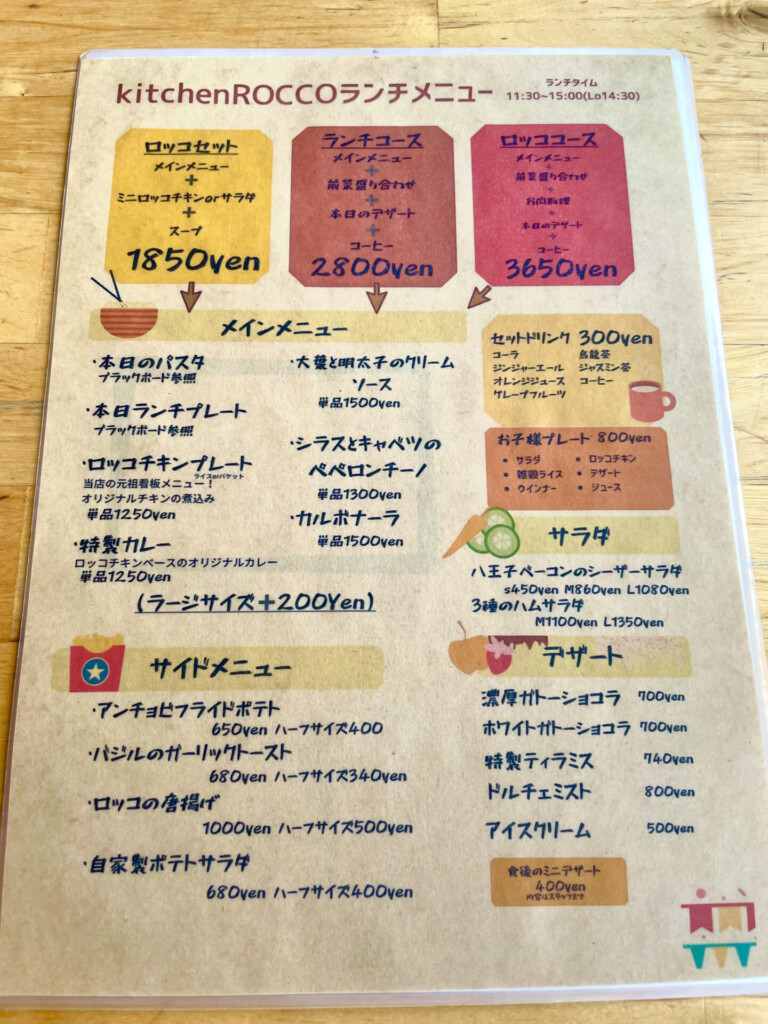 kitchenROCCOランチメニュー
ランチタイム
11:30~15:00(Lo14:30)
ロッコセット
メインメニュー
+
ミニロッコチキンorサラダ
+
スープ
1850yen
ランチコース
メインメニュー
+
前菜盛り合わせ
+
本日のデザート
+
コーヒー
2800yen
ロッココース
メインメニュー
+
前菜盛り合わせ
+
お肉料理
+
本日のデザート
+
コーヒー
3650yen
メインメニュー
・本日のパスタ
ブラックボード参照
・本日ランチプレート
ブラックボード参照
・ロッコチキンプレート
ライスorバケット
当店の元祖看板メニュー!
オリジナルチキンの煮込み
単品1250yen
・特製カレー
ロッコチキンベースのオリジナルカレー
単品1250yen
・大葉と明太子のクリーム
ソース
単品1500yen
・シラスとキャベツの
ペペロンチーノ
単品1300yen
・カルボナーラ
単品1500yen
(ラージサイズ+200Yen)
セットドリンク 300yen
コーラ 烏龍茶
ジンジャーエール ジャスミン茶
オレンジジュース コーヒー
グレープフルーツ
お子様プレート 800yen
• サラダ • ロッコチキン
• 雑穀ライス • デザート
• ウインナー • ジュース
サラダ
八王子ベーコンのシーザーサラダ
s450yen M860yen L1080yen
3種のハムサラダ
M1100yen L1350yen
サイドメニュー
・アンチョビフライドポテト
650yen ハーフサイズ400
・バジルのガーリックトースト
680yen ハーフサイズ340yen
・ロッコの唐揚げ
1000yen ハーフサイズ500yen
・自家製ポテトサラダ
680yen ハーフサイズ400yen
デザート
濃厚ガトーショコラ 700yen
ホワイトガトーショコラ 700yen
特製ティラミス 740yen
ドルチェミスト 800yen
アイスクリーム 500yen
食後のミニデザート
400yen
内容はスタッフまで